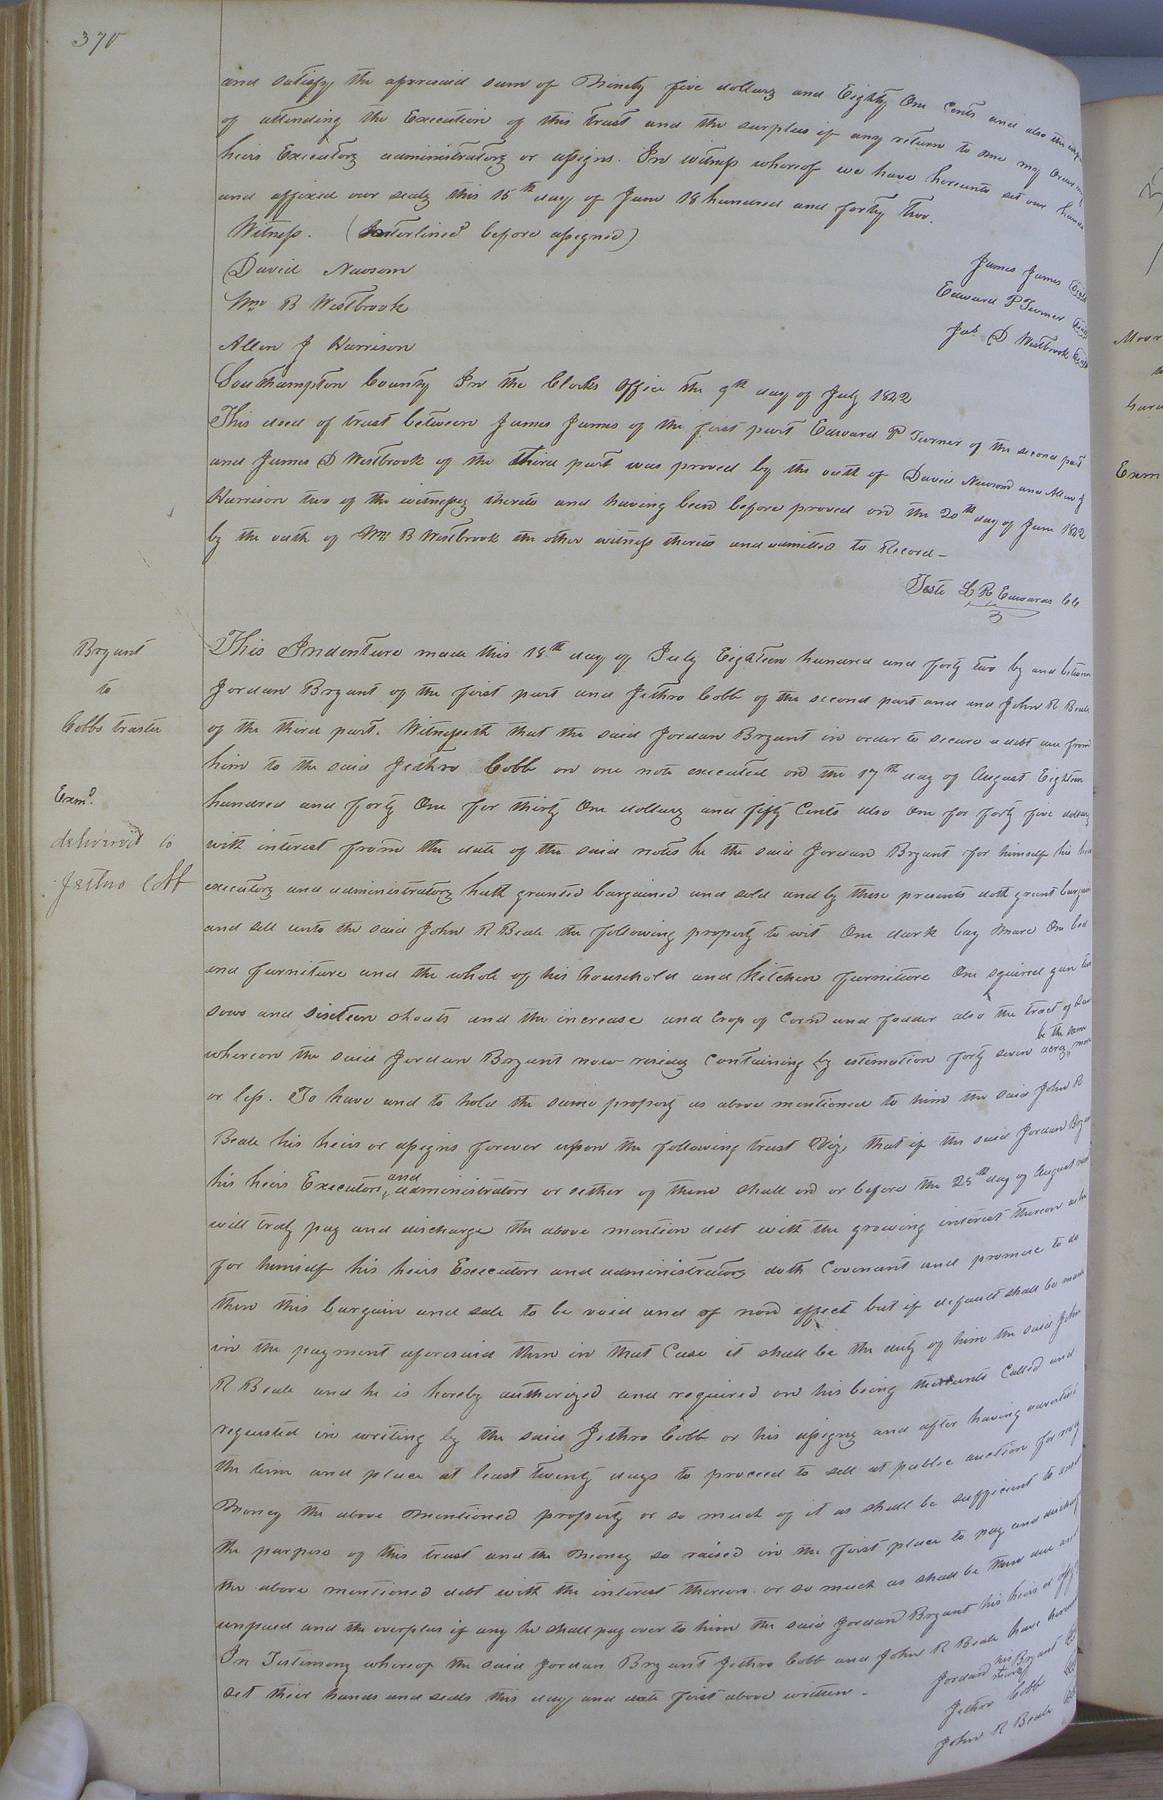 370
and satisfy the aforesaid sum of Ninety five dollars and Eighty One Cents and also the
of attending the Execution of this trust and the surplus if any return to me my
heirs Executors administrators or assigns. In witness whereof we have hereunto set our hands
and affixed our seals this 15th day of June 18 hundred and forty two.
Witness. (Interlined before assigned)
David Newsom
Wm B Westbrook
Allen J Harrison
James James Seal
Edward P Turner Seal
Jas D Westbrook Seal
Southampton County In the Clerks Office the 9th day of July 1842
This deed of trust between James James of the first part Edward P Turner of the second part
and James D Westbrook of the third part was proved by the oath of David Newsom and Allen J
Harrison two of the witnesses thereto and having been before proved on the 20th day of June 1842
by the oath of Wm B Westbrook the other witness thereto and admitted to Record -
Teste L R Edwards CC
Bryant
to
Cobbs trustee
Exmd.
delivered to
Jethro Cobb
This Indenture made this 18th day of July Eighteen hundred and forty two by and between
Jordan Bryant of the first part and Jethro Cobb of the second part and and John R Beale
of the third part. Witnesseth that the said Jordan Bryant in order to secure a debt due from
him to the said Jethro Cobb on one note executed on the 17th day of August Eighteen
hundred and forty One for thirty One dollars and fifty Cents also One for forty five dollars
with interest from the date of the said notes he the said Jordan Bryant for himself his heirs
executors and administrators hath granted bargained and sold and by these presents doth grant bargain
and sell unto the said John R Beale the following property to wit One dark bay mare One bed
and furniture and the whole of his household and kitchen furniture One squirel gun two
sows and sixteen shoats and the increase and Crop of Corn and fodder also the tract of land
whereon the said Jordan Bryant now resides Containing by estimation forty seven acres be the same more
or less. To have and to hold the same property as above mentioned to him the said John R
Beale his heirs or assigns forever upon the following trust Viz, that if the said Jordan Bryant
his heirs Executors and administrators or either of them shall on or before the 25th day of August next
will truly pay and discharge the above mention debt with the growing interest thereon as he
for himself his heirs Executors and administrators doth Covenant and promise to do
then this bargain and sale to be void and of non effect but if default shall be made
in the payment aforesaid then in that Case it shall be the duty of him the said John
R Beale and he is hereby authorized and required on his being thereunto Called and
requested in writing by the said Jethro Cobb or his assigns and after having advertised
the time and place at least twenty days to proceed to sell at public auction for ready
money the above mentioned property or so much of it as shall be sufficient to
the purpose of this trust and the money so raised in the first place to pay and discharge
the above mentioned debt with the interest thereon or so much as shall be then due and
unpaid and the overplus if any he shall pay over to him the said Jordan Bryant his heirs or
In Testimony whereof the said Jordan Bryant Jethro Cobb and John R Beale have hereunto
set their hands and seals this day and date first above written -
Jordan his mark Bryant
Jethro Cobb
John R Beale